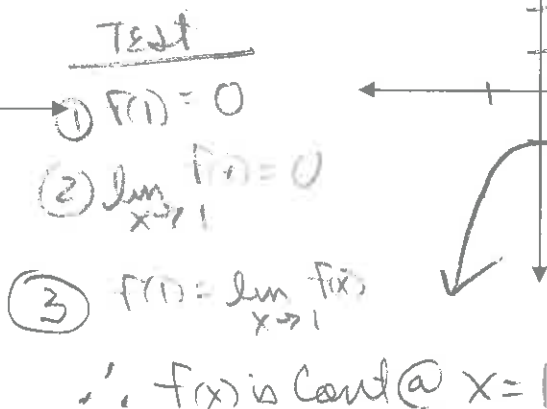 Test
① f(1) = 0
② lim x→1 f(x) = 0
③ f(1) = lim x→1 f(x)
∴ f(x) is Cont @ x = 1